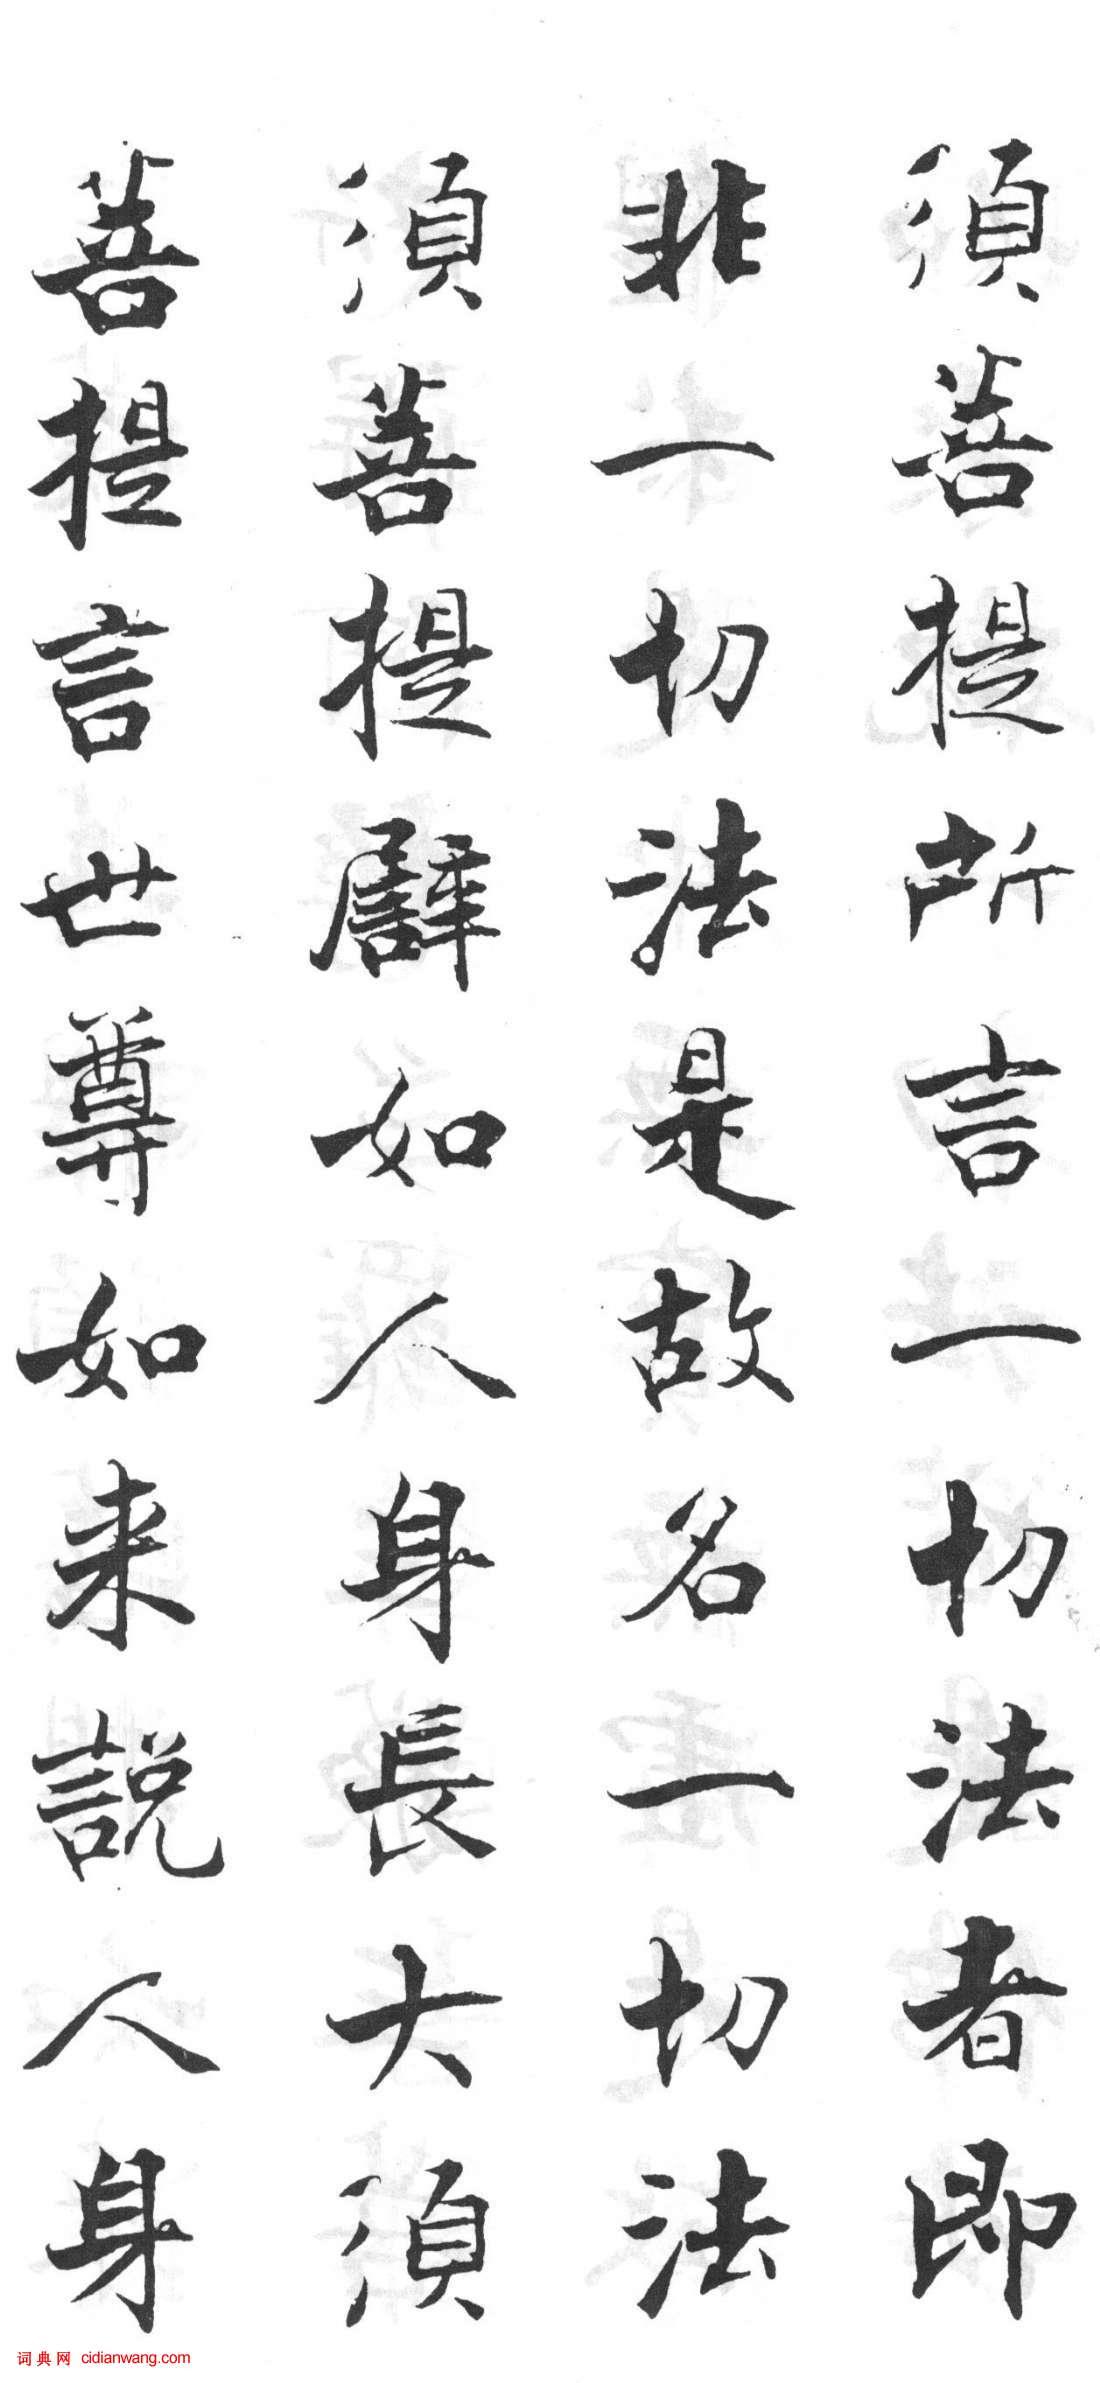 須菩提所言一切法者即
非一切法是故名一切法
須菩提譬如人身長大須
菩提言世尊如来說人身
词典网 cidianwang.com